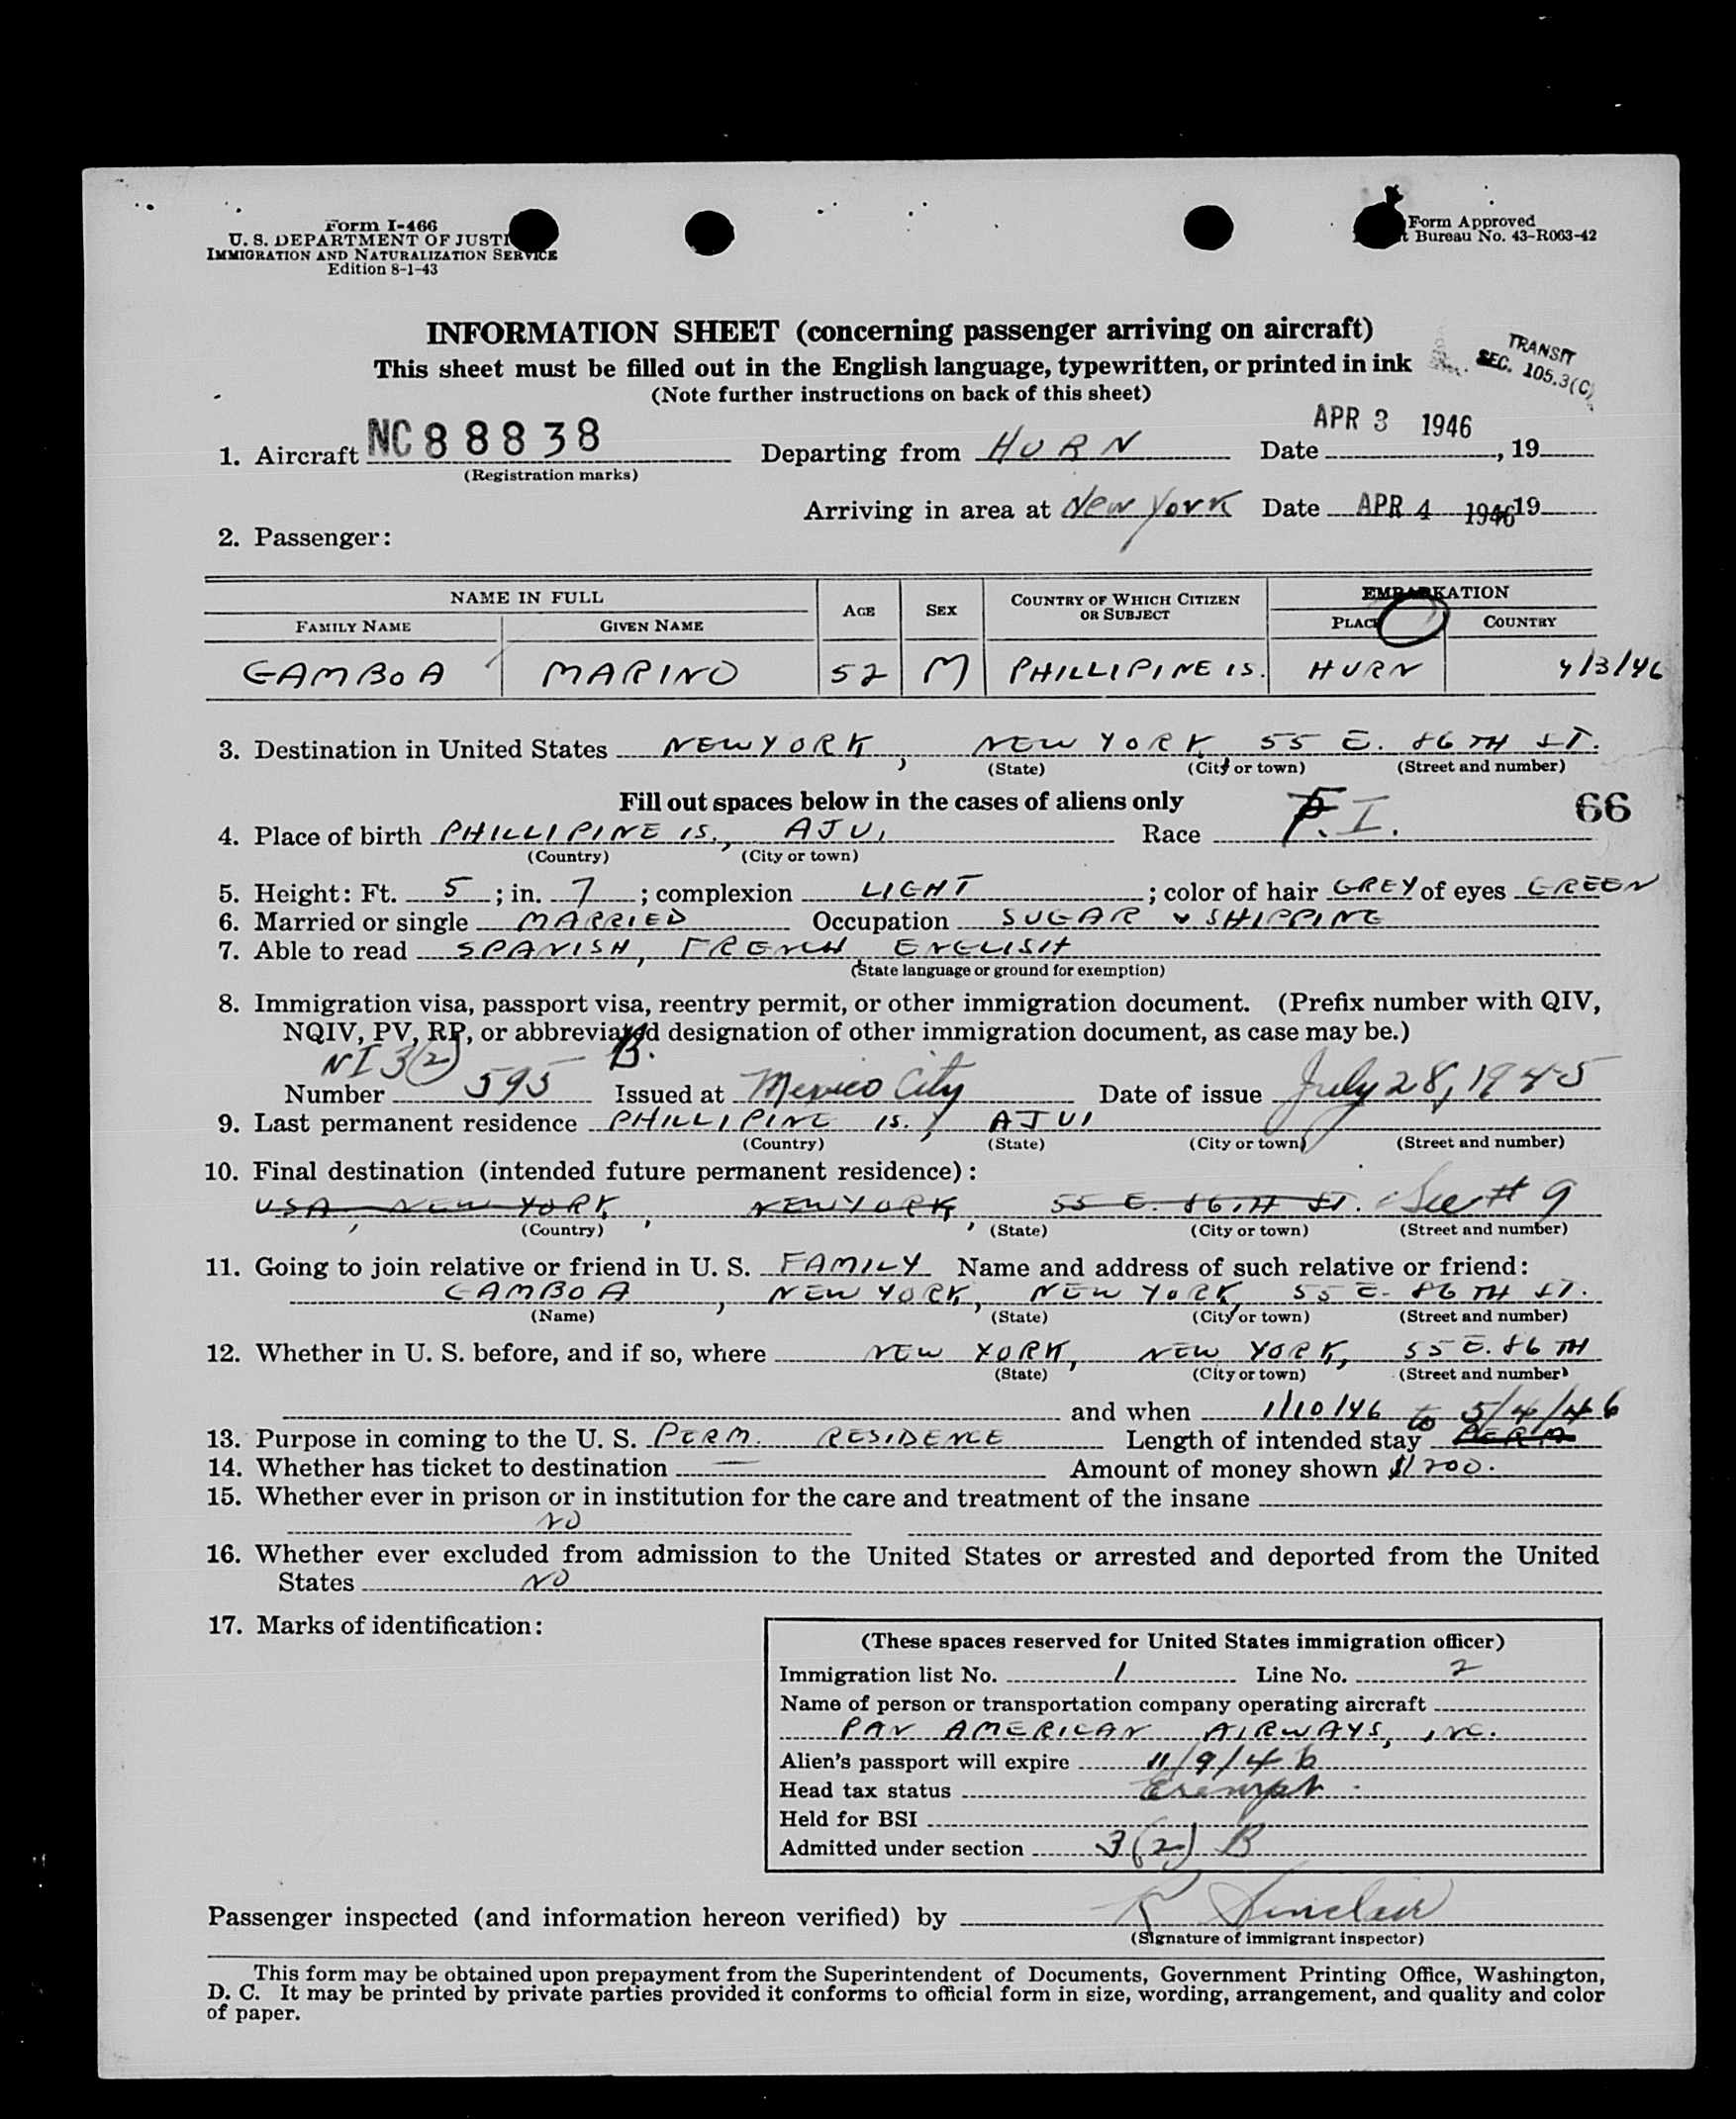 Form I-466
U. S. DEPARTMENT OF JUSTI
IMMIGRATION AND NATURALIZATION SERVICE
Edition 8-1-43
Form Approved
t Bureau No. 43-R063-42
INFORMATION SHEET (concerning passenger arriving on aircraft)
This sheet must be filled out in the English language, typewritten, or printed in ink
(Note further instructions on back of this sheet)
TRANSIT
SEC. 105.3(C)
1. Aircraft NC 88838 Departing from HURN Date APR 3 1946, 19
(Registration marks)
Arriving in area at New York Date APR 4 1946 19
2. Passenger:
NAME IN FULL AGE SEX COUNTRY OF WHICH CITIZEN OR SUBJECT EMBARKATION
FAMILY NAME GIVEN NAME PLACE COUNTRY
GAMBOA MARINO 52 M PHILLIPINE IS. HURN 4/3/46
3. Destination in United States NEW YORK, NEW YORK 55 E. 86TH ST.
(State) (City or town) (Street and number)
Fill out spaces below in the cases of aliens only
66
4. Place of birth PHILLIPINE IS., AJUI Race P.I.
(Country) (City or town)
5. Height: Ft. 5; in. 7; complexion LIGHT; color of hair GREY of eyes GREEN
6. Married or single MARRIED Occupation SUGAR & SHIPPING
7. Able to read SPANISH, FRENCH, ENGLISH
(State language or ground for exemption)
8. Immigration visa, passport visa, reentry permit, or other immigration document. (Prefix number with QIV,
NQIV, PV, RP, or abbreviated designation of other immigration document, as case may be.)
NI 3(2) B.
Number 595 Issued at Mexico City Date of issue July 28, 1945
9. Last permanent residence PHILLIPINE IS., AJUI
(Country) (State) (City or town) (Street and number)
10. Final destination (intended future permanent residence):
USA, NEW YORK, NEW YORK, 55 E. 86TH ST. See # 9
(Country) (State) (City or town) (Street and number)
11. Going to join relative or friend in U. S. FAMILY Name and address of such relative or friend:
GAMBOA, NEW YORK, NEW YORK, 55 E. 86TH ST.
(Name) (State) (City or town) (Street and number)
12. Whether in U. S. before, and if so, where NEW YORK, NEW YORK, 55 E. 86TH
(State) (City or town) (Street and number)
and when 1/10/46 to 5/4/46
13. Purpose in coming to the U. S. PERM. RESIDENCE Length of intended stay PERM
14. Whether has ticket to destination — Amount of money shown $1200.
15. Whether ever in prison or in institution for the care and treatment of the insane
NO
16. Whether ever excluded from admission to the United States or arrested and deported from the United
States NO
17. Marks of identification:
(These spaces reserved for United States immigration officer)
Immigration list No. 1 Line No. 2
Name of person or transportation company operating aircraft
PAN AMERICAN AIRWAYS, INC.
Alien's passport will expire 11/9/46
Head tax status Exempt
Held for BSI
Admitted under section 3(2) B
Passenger inspected (and information hereon verified) by R Sinclair
(Signature of immigrant inspector)
This form may be obtained upon prepayment from the Superintendent of Documents, Government Printing Office, Washington,
D. C. It may be printed by private parties provided it conforms to official form in size, wording, arrangement, and quality and color
of paper.